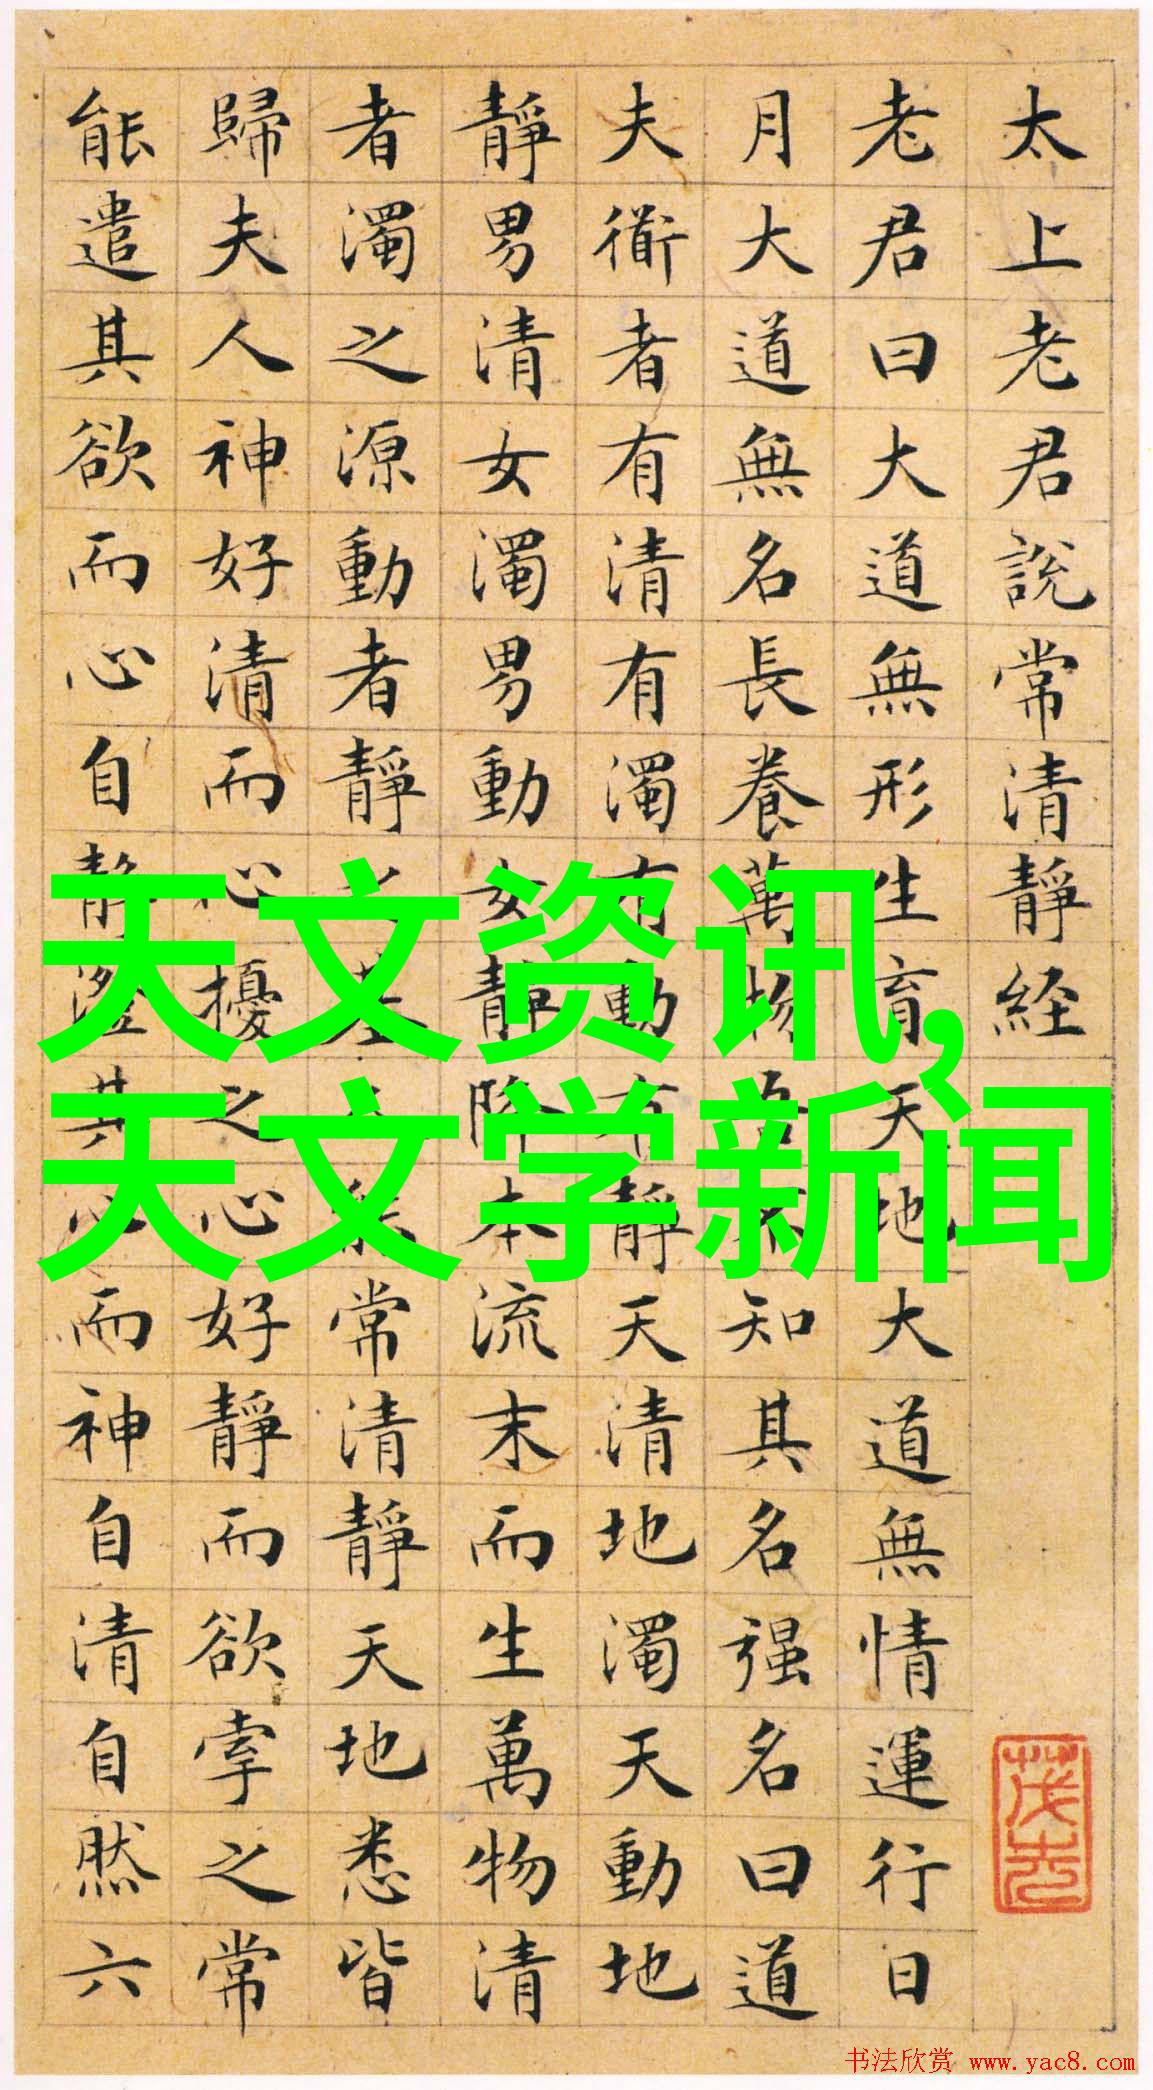 太上老君說常清靜経
老君曰大道無形生育天地大道無情運行日
月大道無名長養萬物吾不知其名强名曰道
夫衜者有清有濁有動有靜天清地濁天動地
靜男清女濁男動女靜降本流末而生萬物清
者濁之源動者靜之基人能常清靜天地悉皆
歸夫人神好清而心擾之心好靜而欲牽之常
能遣其欲而心自靜澄其心而神自清自然六
天文资讯,
天文学新闻
书法欣赏 www.yac8.com